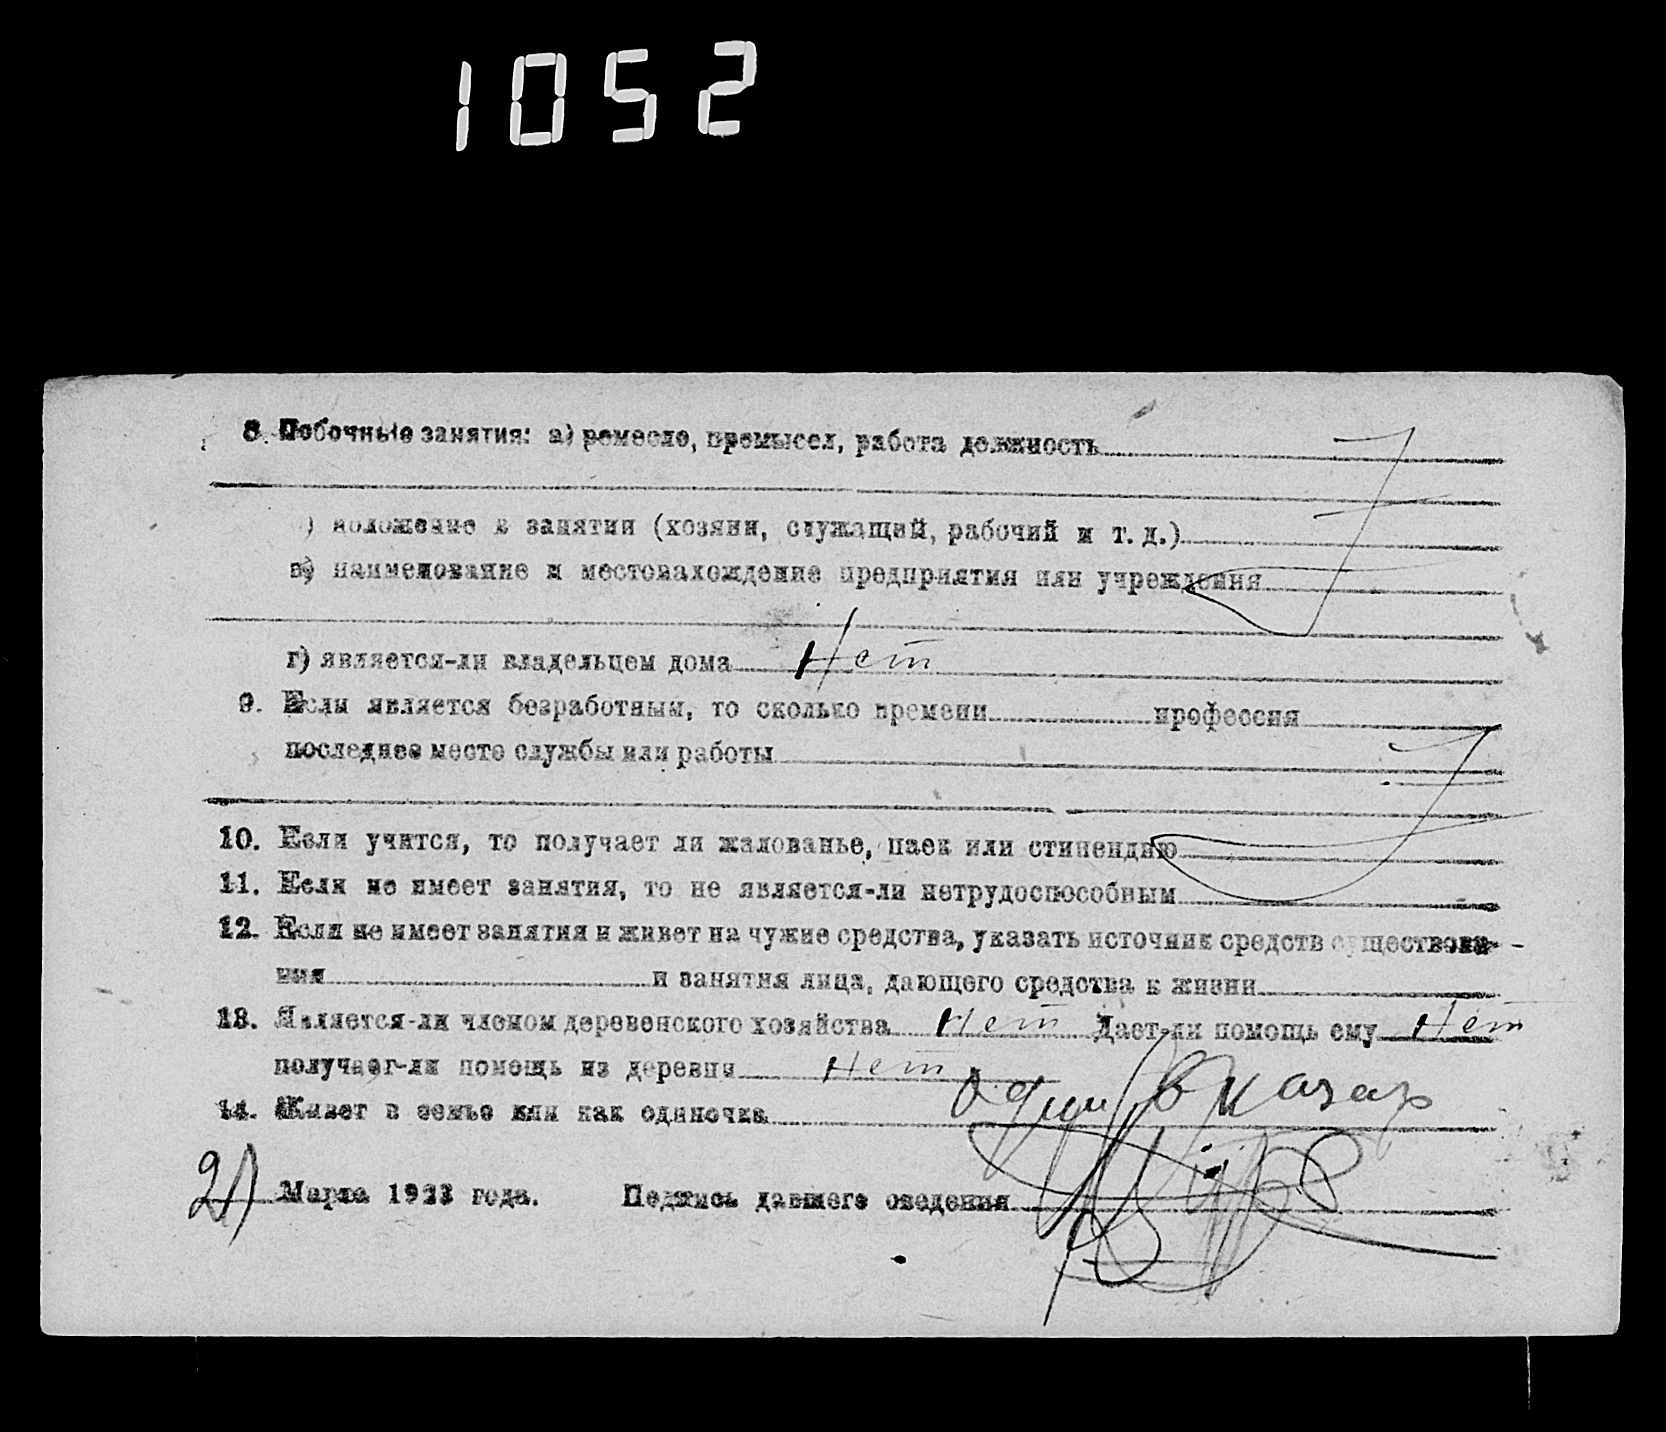 1052
8. Побочные занятия: а) ремесло, промысел, работа должность
) положение в занятии (хозяин, служащий, рабочий и т. д.)
в) наименование и местонахождение предприятия или учреждения
г) является-ли владельцем дома Нет
9. Если является безработным, то сколько времени профессия
последнее место службы или работы
10. Если учится, то получает ли жалованье, паек или стипендию
11. Если не имеет занятия, то не является-ли нетрудоспособным
12. Если не имеет занятия и живет на чужие средства, указать источник средств существова-
ния и занятия лица, дающего средства к жизни
13. Является-ли членом деревенского хозяйства Нет Дает-ли помощь ему Нет
получает-ли помощь из деревни Нет
14. Живет в семье или как одиночка
Марта 1923 года. Подпись давшего сведения